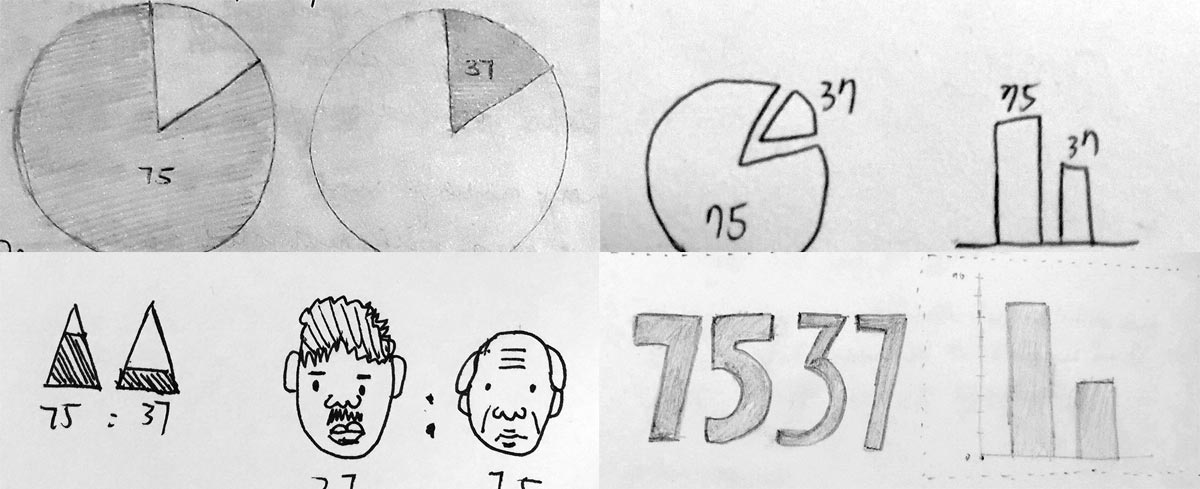 75
37
37
75
75
37
75 : 37
:
37
75
7537